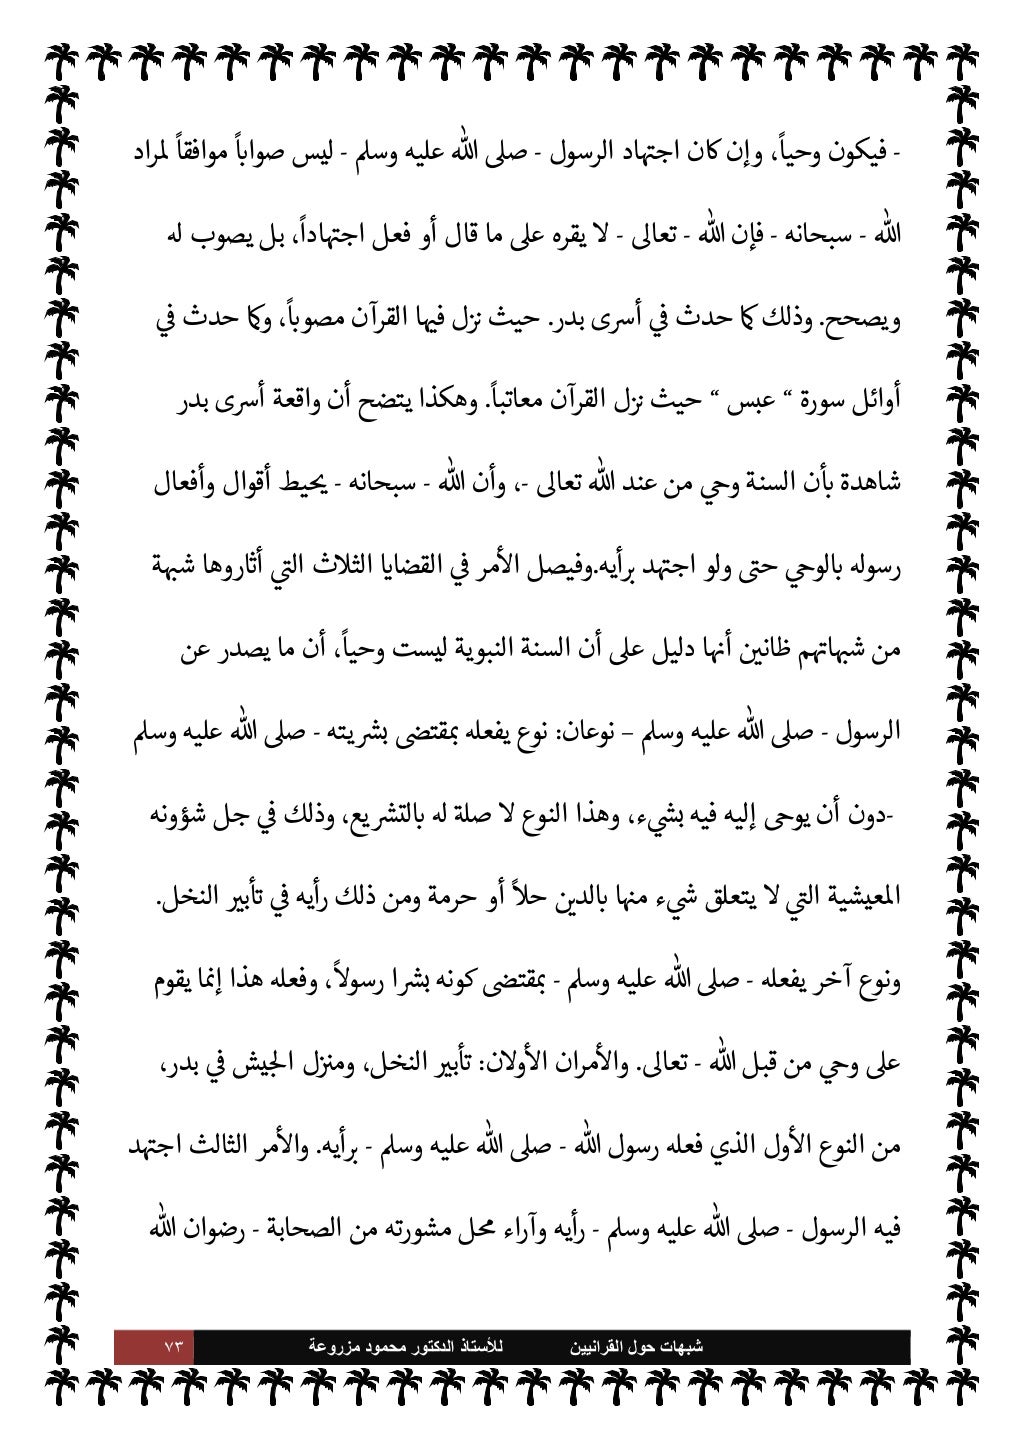 - فيكون وحياً، وإن كان اجتهاد الرسول - صلى الله عليه وسلم - ليس صواباً موافقاً لمراد
الله - سبحانه - فإن الله - تعالى - لا يقره على ما قال أو فعل اجتهاداً، بل يصوب له
ويصحح. وذلك كما حدث في أسرى بدر. حيث نزل فيها القرآن مصوباً، وكما حدث في
أوائل سورة “ عبس “ حيث نزل القرآن معاتباً. وهكذا يتضح أن واقعة أسرى بدر
شاهدة بأن السنة وحي من عند الله تعالى -، وأن الله - سبحانه - يحيط أقوال وأفعال
رسوله بالوحي حتى ولو اجتهد برأيه.وفيصل الأمر في القضايا الثلاث التي أثاروها شبهة
من شبهاتهم ظانين أنها دليل على أن السنة النبوية ليست وحياً، أن ما يصدر عن
الرسول - صلى الله عليه وسلم – نوعان: نوع يفعله بمقتضى بشريته - صلى الله عليه وسلم
-دون أن يوحى إليه فيه بشيء، وهذا النوع لا صلة له بالتشريع، وذلك في جل شؤونه
المعيشية التي لا يتعلق شيء منها بالدين حلاً أو حرمة ومن ذلك رأيه في تأبير النخل.
ونوع آخر يفعله - صلى الله عليه وسلم - بمقتضى كونه بشرا رسولاً، وفعله هذا إنما يقوم
على وحي من قبل الله - تعالى. والأمران الأولان: تأبير النخل، ومنزل الجيش في بدر،
من النوع الأول الذي فعله رسول الله - صلى الله عليه وسلم - برأيه. والأمر الثالث اجتهد
فيه الرسول - صلى الله عليه وسلم - رأيه وآراء محل مشورته من الصحابة - رضوان الله
شبهات حول القرانيين للأستاذ الدكتور محمود مزروعة ٧٣